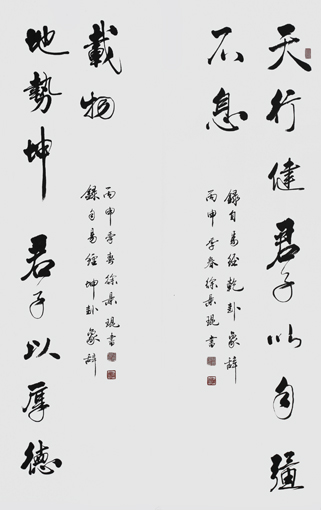 天行健君子以自彊
不息
錄自易經乾卦象辭
丙申季春徐秉琨書
地勢坤君子以厚德
載物
錄自易經坤卦象辭
丙申季春徐秉琨書